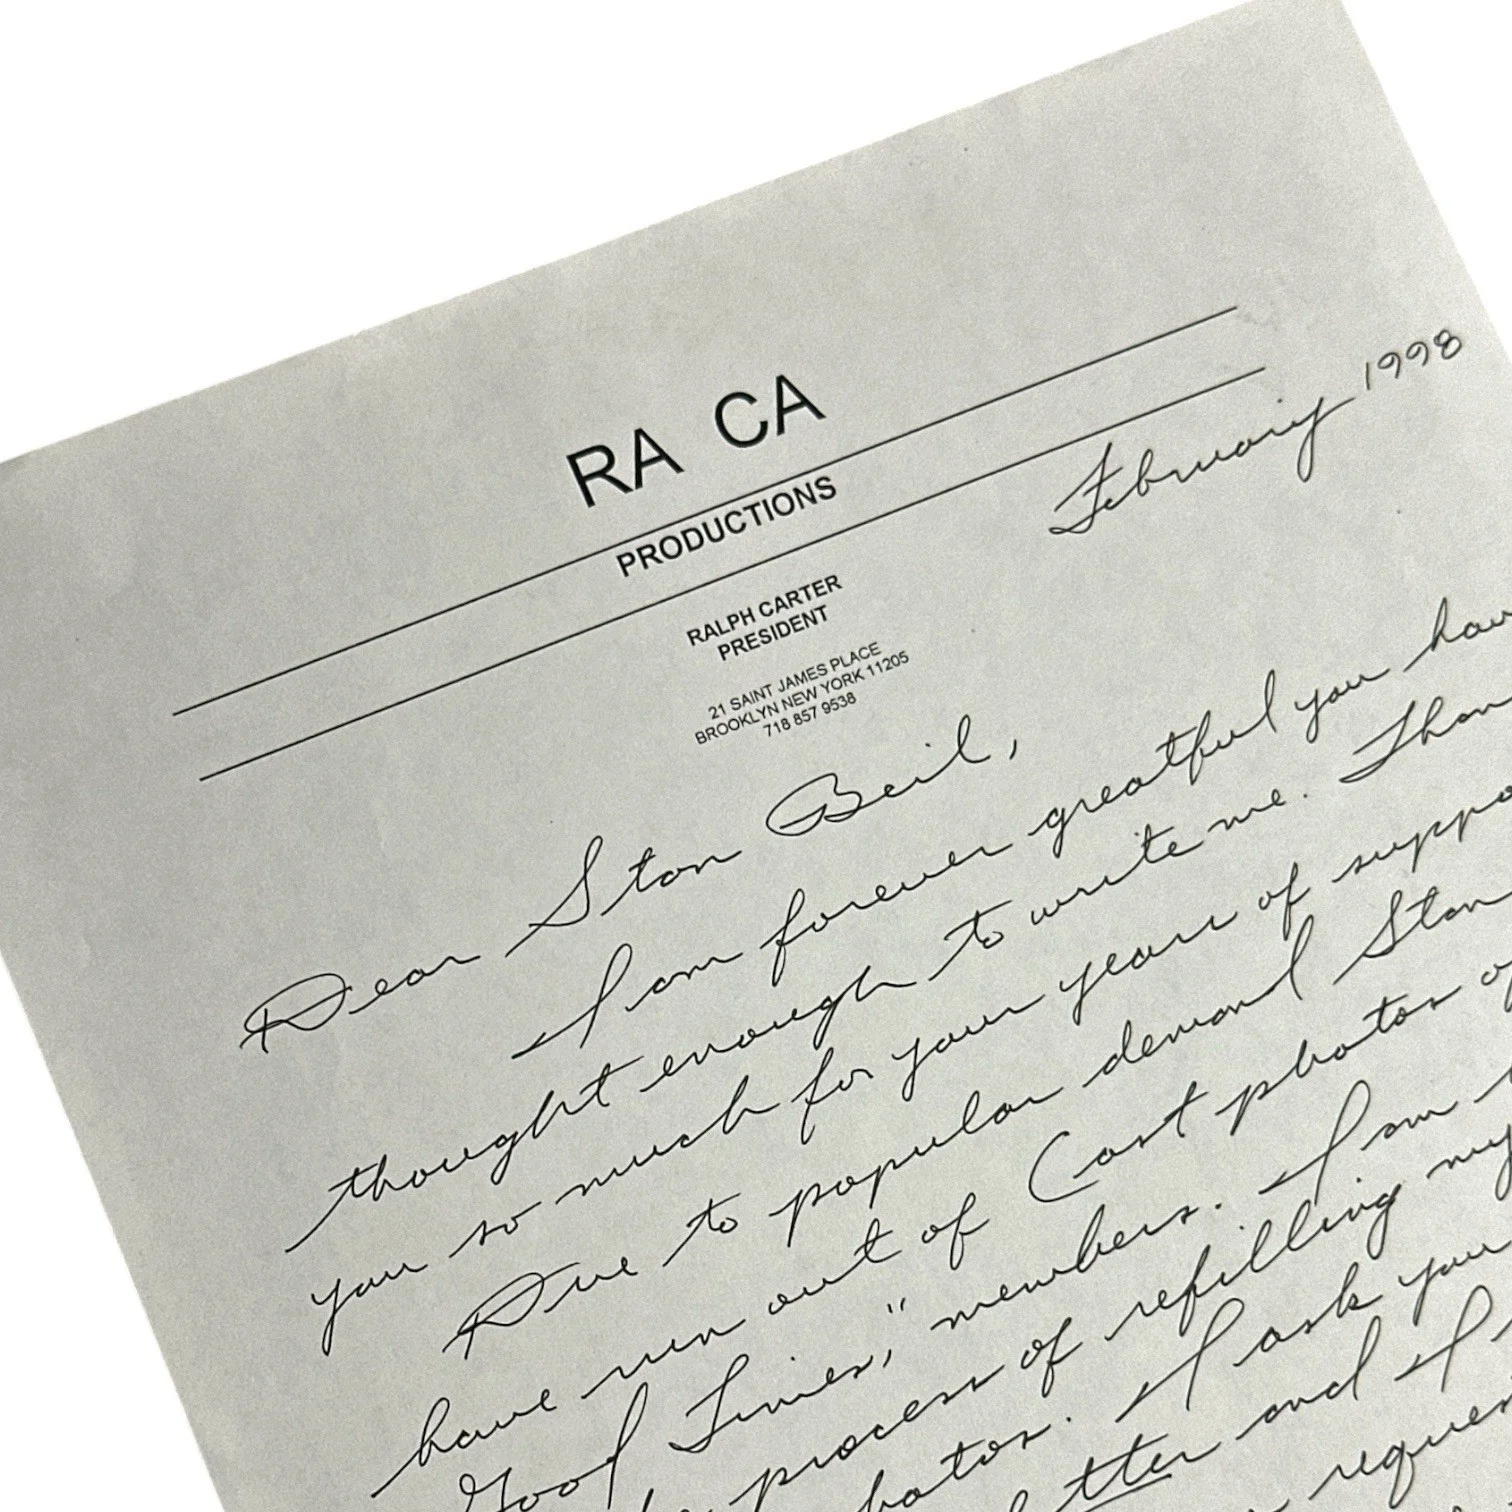 RA CA
PRODUCTIONS
RALPH CARTER
PRESIDENT
21 SAINT JAMES PLACE
BROOKLYN NEW YORK 11205
718 857 9538
February 1998
Dear Stan Beil,
I am forever greatful you hav
thought enough to write me. Than
you so much for your years of suppo
Due to popular demand Stan
have run out of Cast photos of
Good Times," members. I am
process of refilling my
hotos. I ask you
tter and I
reques